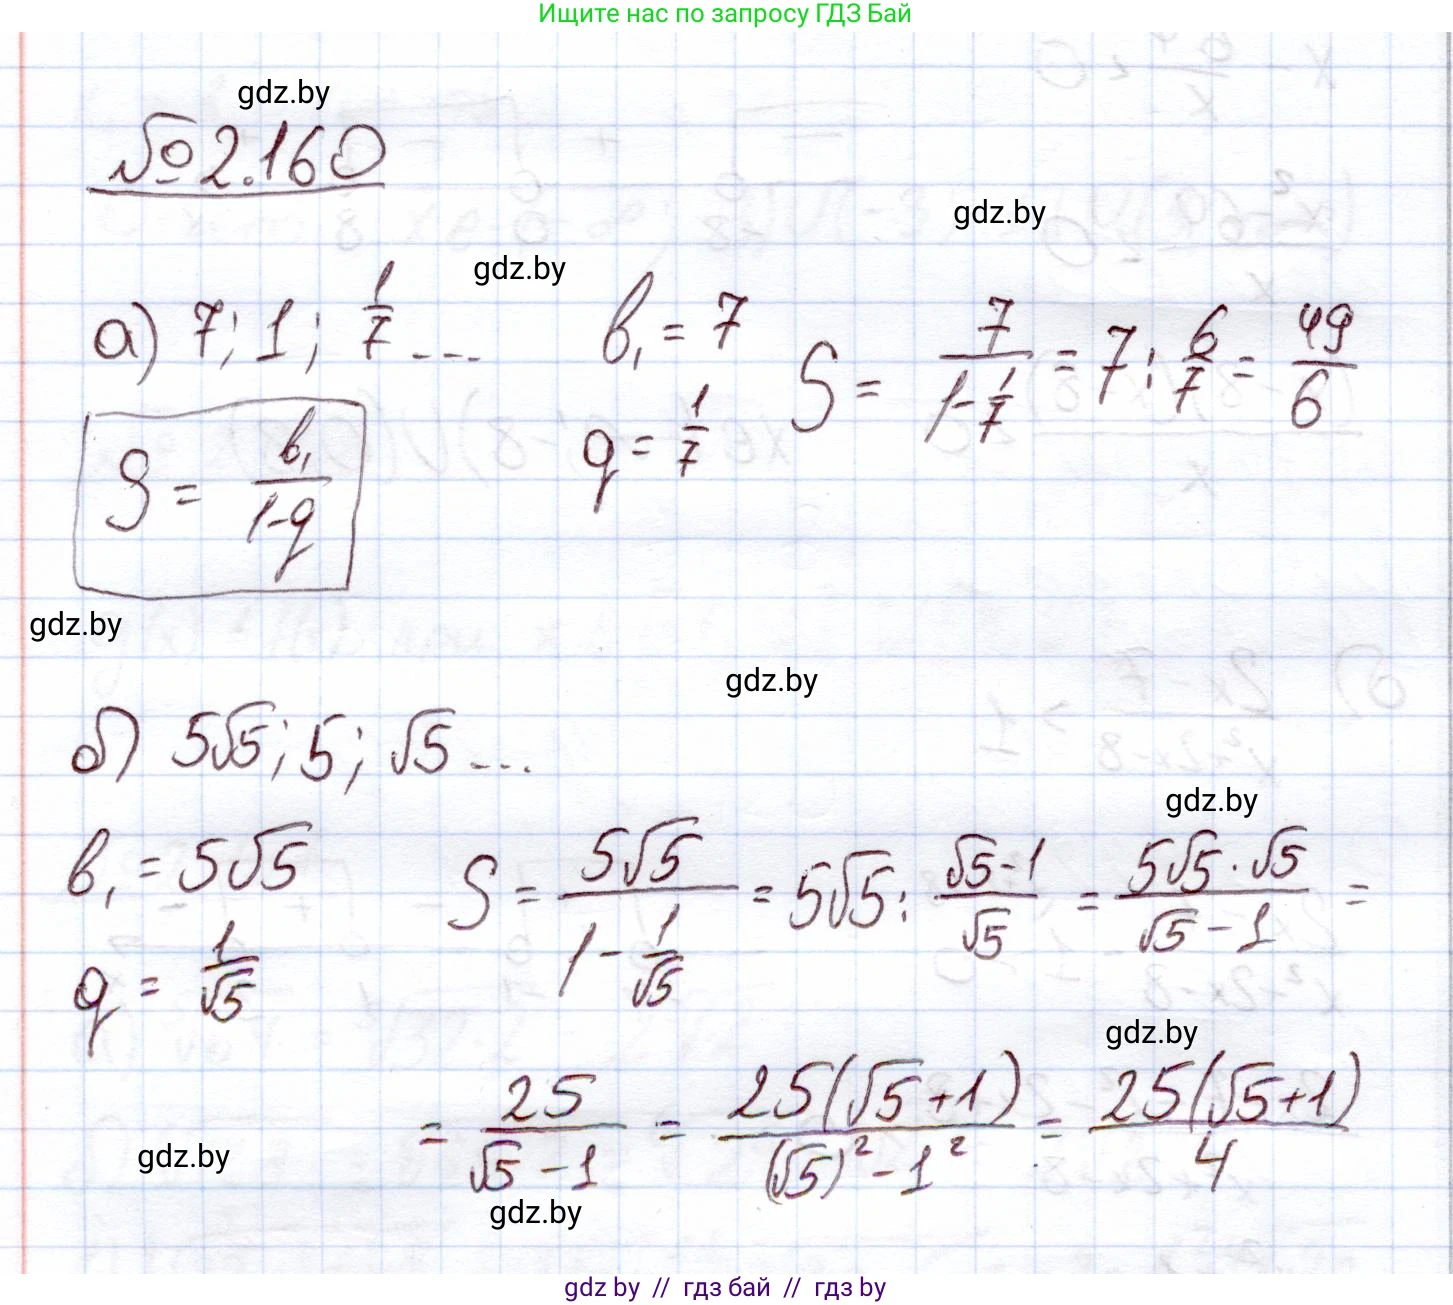 Ищите нас по запросу ГДЗ Бай
gdz.by
№2.160
gdz.by
gdz.by
а) 7; 1; 1/7 ...
b₁ = 7
S = 7/(1-1/7) = 7 : 6/7 = 49/6
q = 1/7
S = b₁/(1-q)
gdz.by
gdz.by
б) 5√5; 5; √5 ...
gdz.by
b₁ = 5√5
S = 5√5/(1 - 1/√5) = 5√5 : (√5-1)/√5 = (5√5 · √5)/(√5 - 1) =
q = 1/√5
gdz.by
= 25/(√5 - 1) = 25(√5+1)/((√5)² - 1²) = 25(√5+1)/4
gdz.by
gdz.by
gdz by // гдз бай // гдз by